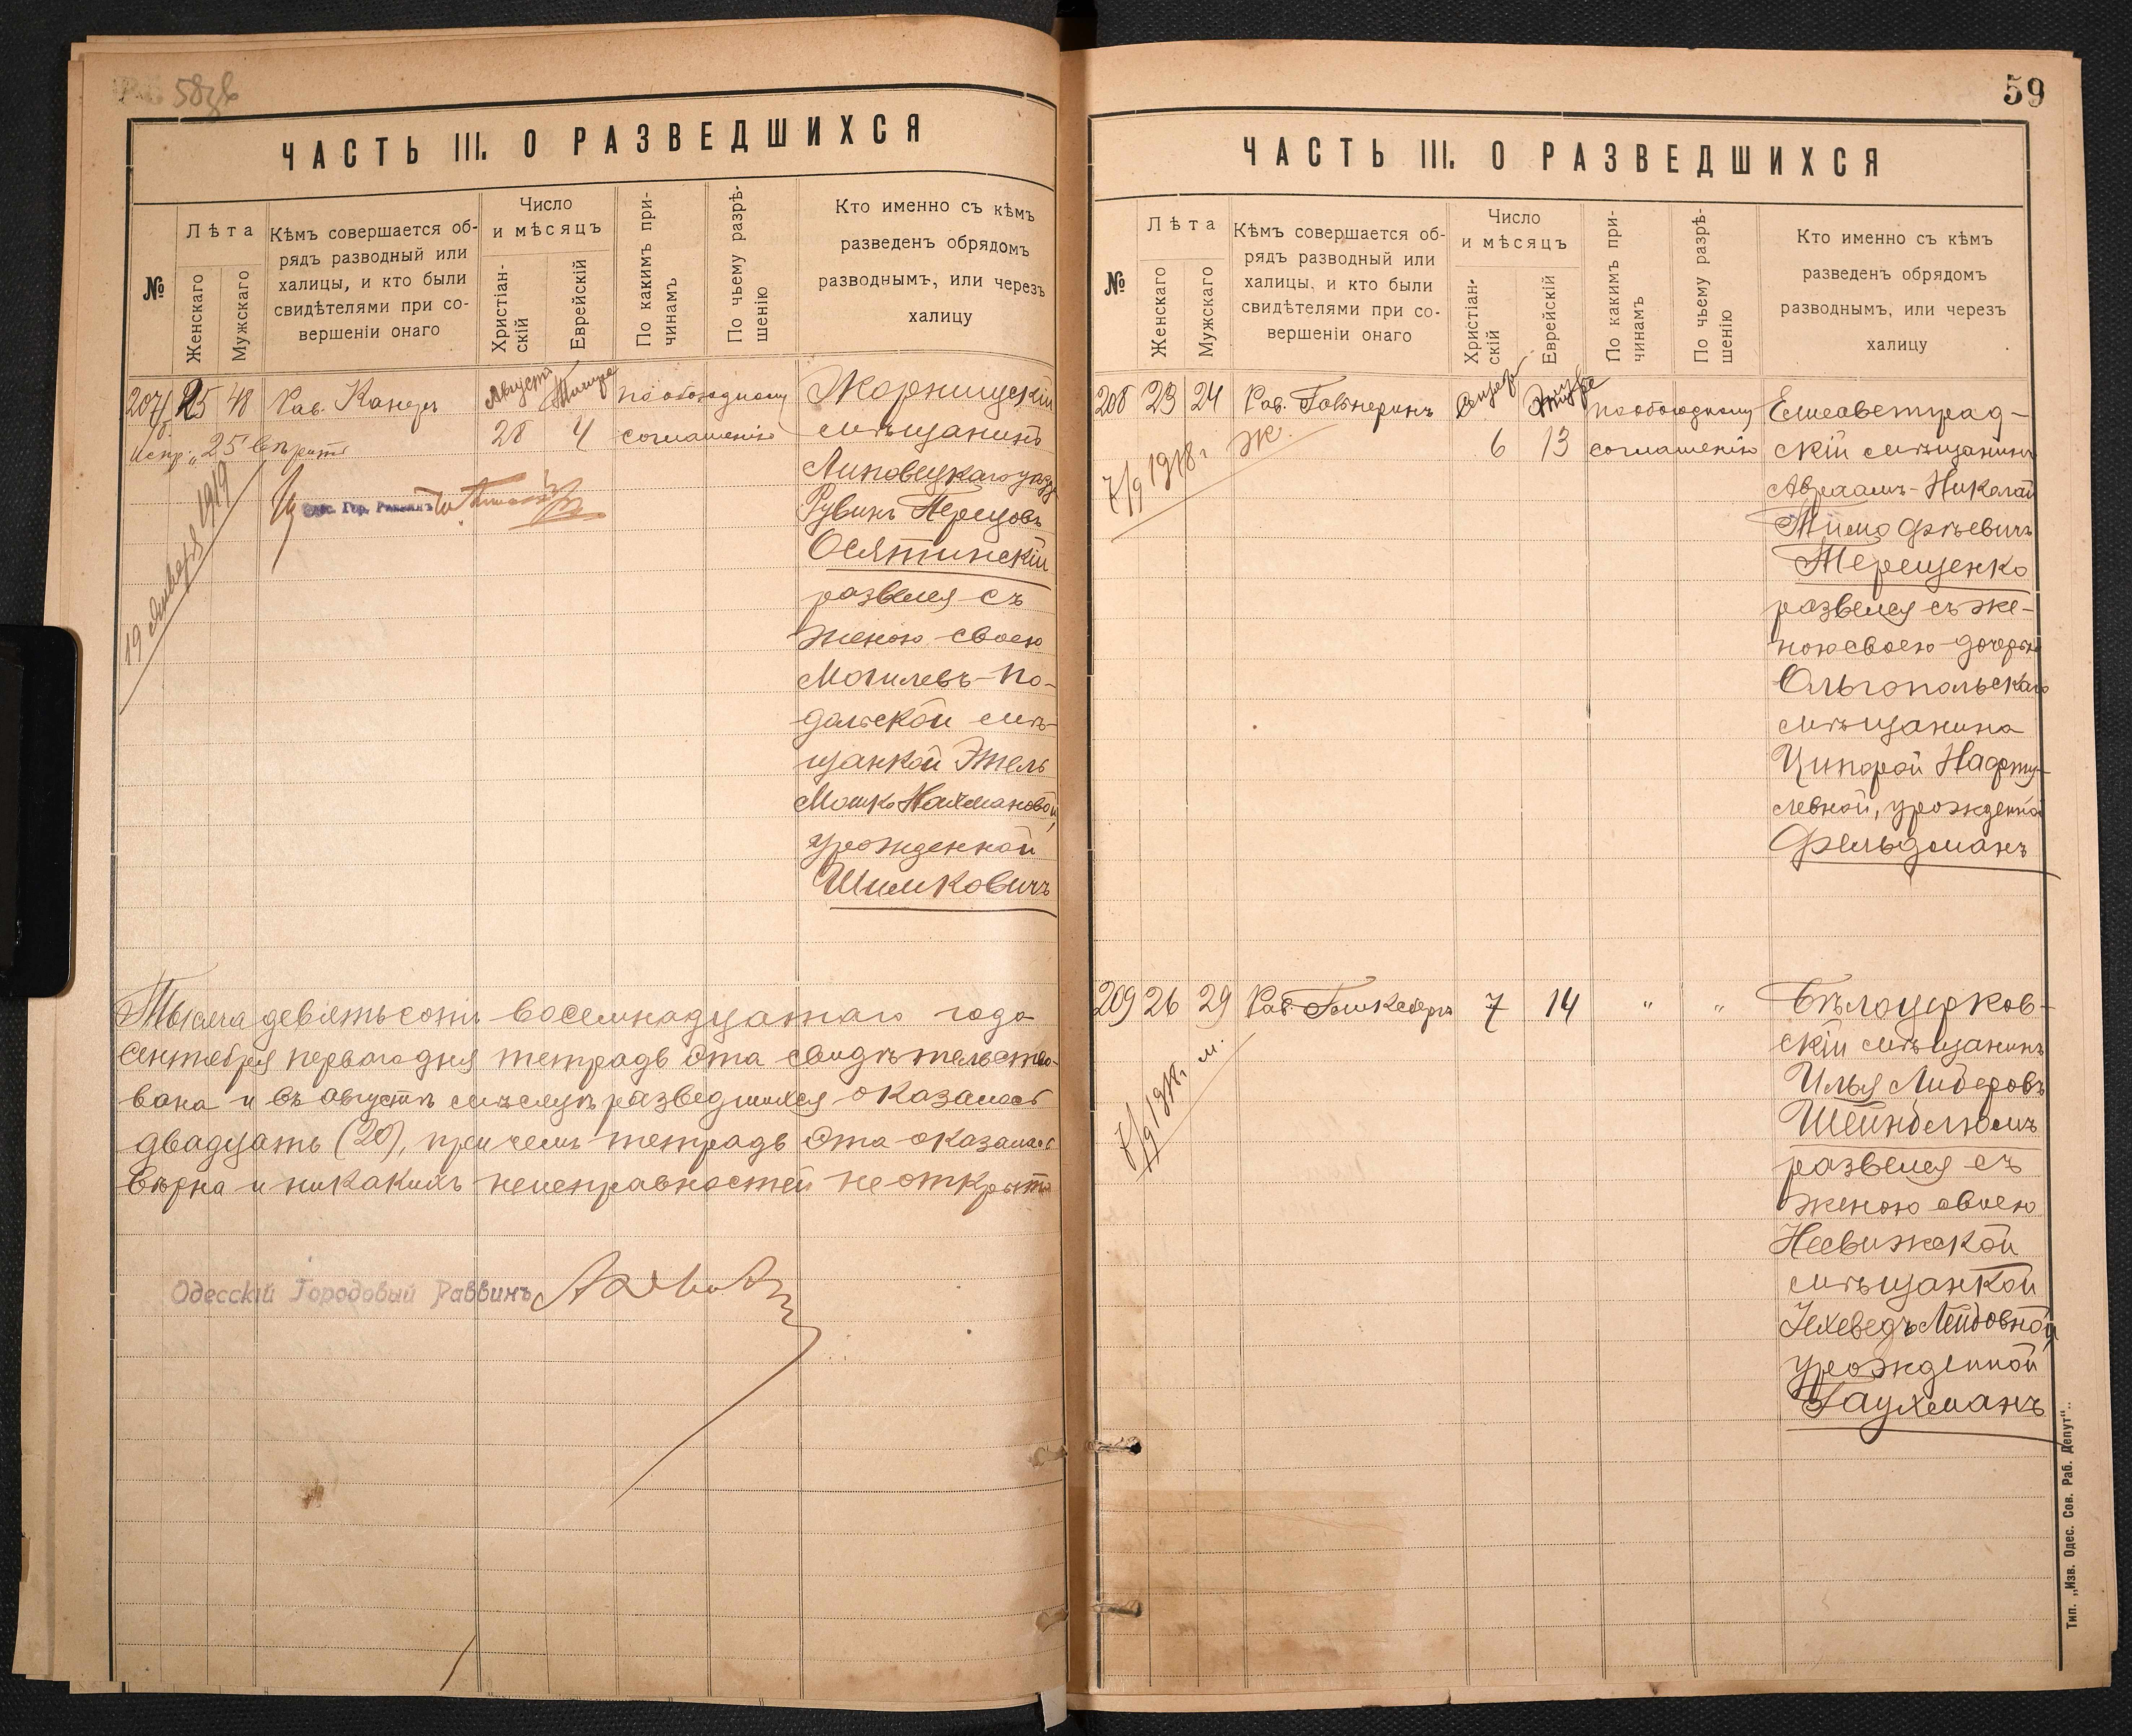 58об
ЧАСТЬ III. О РАЗВЕДШИХСЯ
№
Лѣта
Женскаго
Мужскаго
Кѣмъ совершается об-
рядъ разводный или
халицы, и кто были
свидѣтелями при со-
вершеніи онаго
Число
и мѣсяцъ
Христіан-
скій
Еврейскій
По какимъ при-
чинамъ
По чьему разрѣ-
шенію
Кто именно съ кѣмъ
разведенъ обрядомъ
разводнымъ, или черезъ
халицу
207 25 48 Рав. Канеръ Августъ 28 Тишре 4 по обоюдному
соглашенію
Испр: „25" вѣрить
Одес. Гор. Раввинъ
19 января 1919
Жорнищскій
мѣщанинъ
Липовецкаго уѣзда
Рувинъ Перецовъ
Осятинскій
развелся съ
женою своею
Могилевъ-По-
дольской мѣ-
щанкой Этель
Мошко-Нахмановой,
урожденной
Шимковичъ
Тысяча девятьсотъ восемнадцатаго года
Сентября перваго дня тетрадь эта свидѣтельство-
вана и въ августѣ мѣсяцѣ разведшихся оказалось
двадцать (20), при чемъ тетрадь эта оказалась
вѣрна и никакихъ неисправностей не открыто
Одесскій Городовый Раввинъ
59
ЧАСТЬ III. О РАЗВЕДШИХСЯ
№
Лѣта
Женскаго
Мужскаго
Кѣмъ совершается об-
рядъ разводный или
халицы, и кто были
свидѣтелями при со-
вершеніи онаго
Число
и мѣсяцъ
Христіан-
скій
Еврейскій
По какимъ при-
чинамъ
По чьему разрѣ-
шенію
Кто именно съ кѣмъ
разведенъ обрядомъ
разводнымъ, или черезъ
халицу
208 23 24 Рав. 6 13 по обоюдному
соглашенію
7/9 1918 г. Ж.
Елисаветград-
скій мѣщанинъ
Авраамъ-Николай
Тимофѣевичъ
Терещенко
развелся съ же-
ною своею дочерью
Ольгопольскаго
мѣщанина
Ципорой Нафту-
левной, урожденной
Фельдманъ
209 26 29 Рав. 7 14 " "
7/9 1918 г. м.
Бѣлоцерков-
скій мѣщанинъ
Илья Лидеровъ
Шейнблюмъ
развелся съ
женою своею
Несвижской
мѣщанкой
Іехеведъ Лейбовной,
урожденной
Гаухманъ
Тип. „Изв. Одес. Сов. Раб. Депут"..